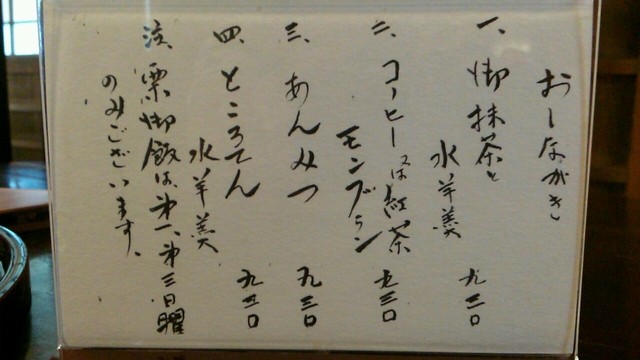 おしながき
一、御抹茶と
水羊羹 九三〇
二、コーヒー又は紅茶
モンブラン 九三〇
三、あんみつ 九三〇
四、ところてん
水羊羹 九三〇
注、栗御飯は第一、第三日曜
のみございます。